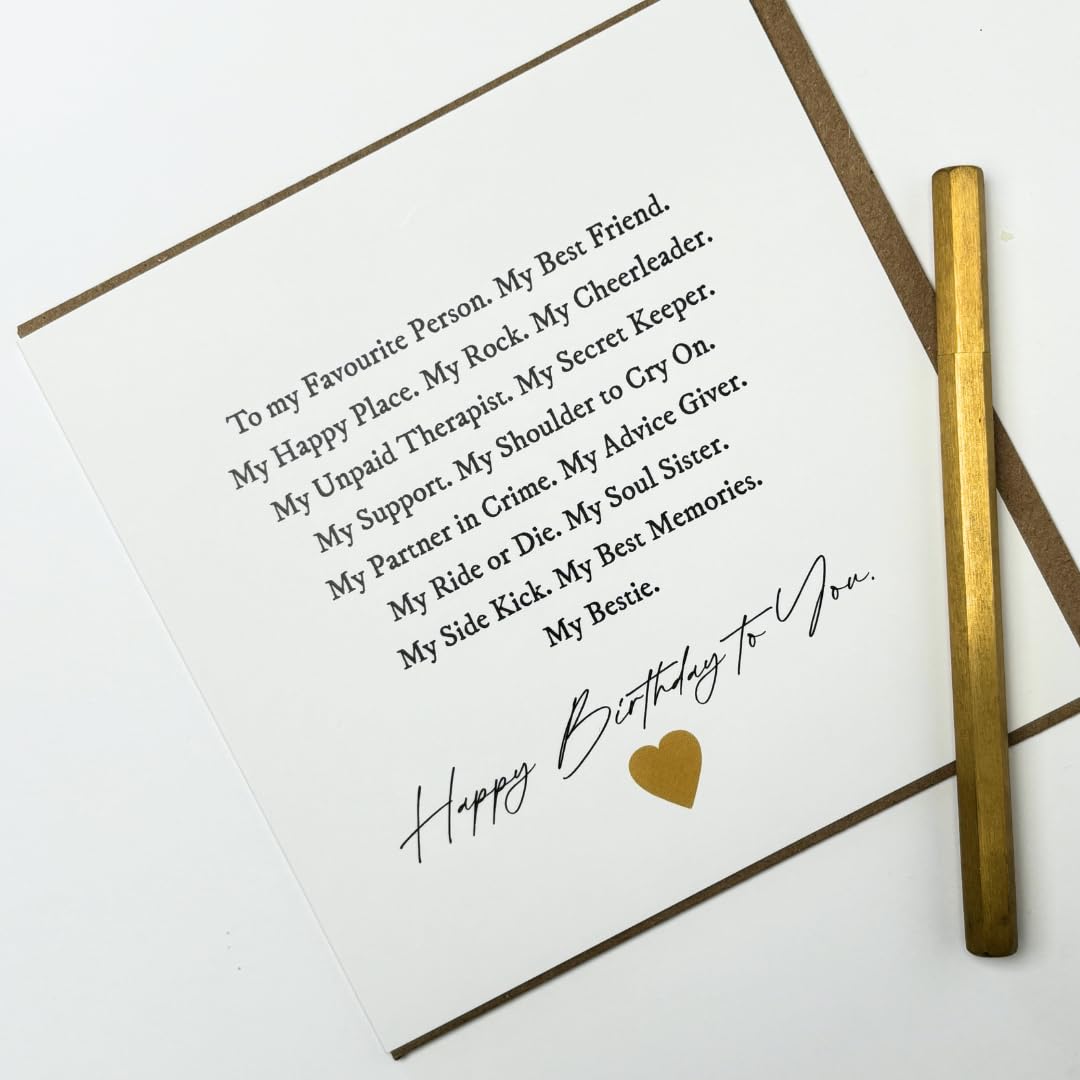 To my Favourite Person. My Best Friend.
My Happy Place. My Rock. My Cheerleader.
My Unpaid Therapist. My Secret Keeper.
My Support. My Shoulder to Cry On.
My Partner in Crime. My Advice Giver.
My Ride or Die. My Soul Sister.
My Side Kick. My Best Memories.
My Bestie.
Happy Birthday to You.